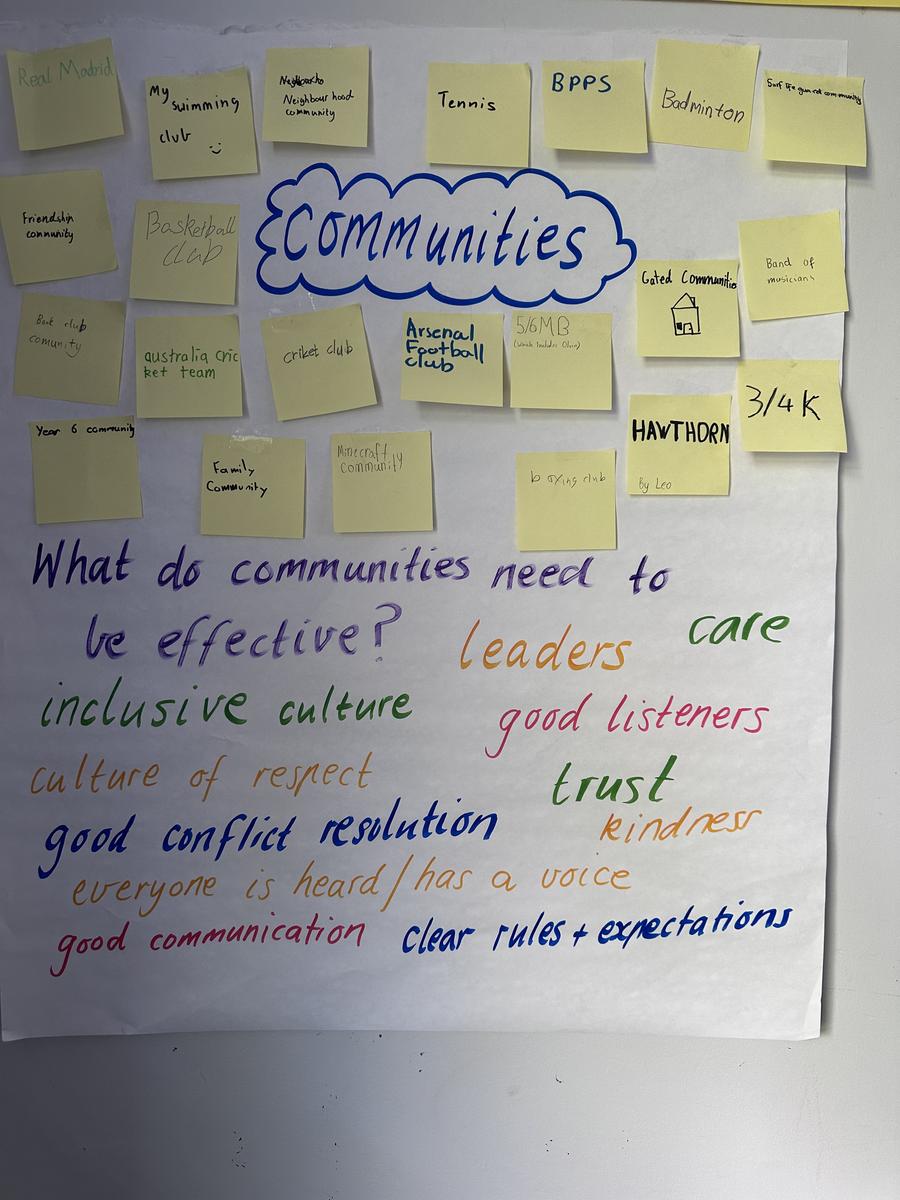 Real Madrid
My
suimming
club
Neighbour hood
community
Tennis
BPPS
Badminton
Surf life gun rot community
Friendship
community
Basketball
club
Communities
Gated Communities
Band of
musicians
Book club
comunity
australia cric
ket team
criket club
Arsenal
Football
club
5/6MB
(which includes Olivia)
3/4 K
HAWTHORN
By Leo
Year 6 community
Family
Community
Minecraft
community
boxing club
What do communities need to
be effective?
leaders
care
inclusive culture
good listeners
culture of respect
trust
good conflict resolution
kindness
everyone is heard/has a voice
good communication
clear rules + expectations